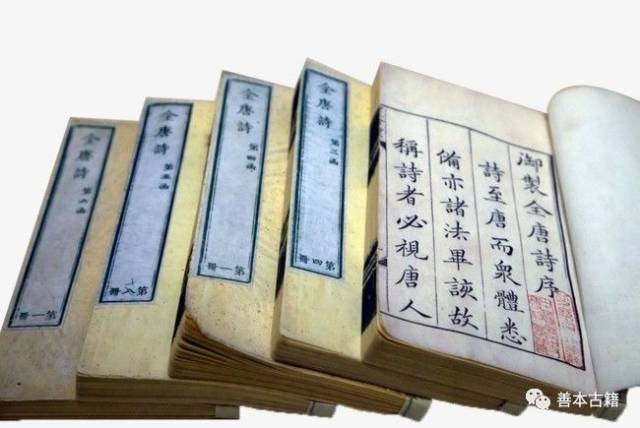 御製全唐詩序
詩至唐而衆體悉
備亦諸法畢該故
稱詩者必視唐人
全唐詩 第三函
第四冊
全唐詩 第四函
第一冊
全唐詩 第五函
第八冊
全唐詩 第六函
第一冊
善本古籍